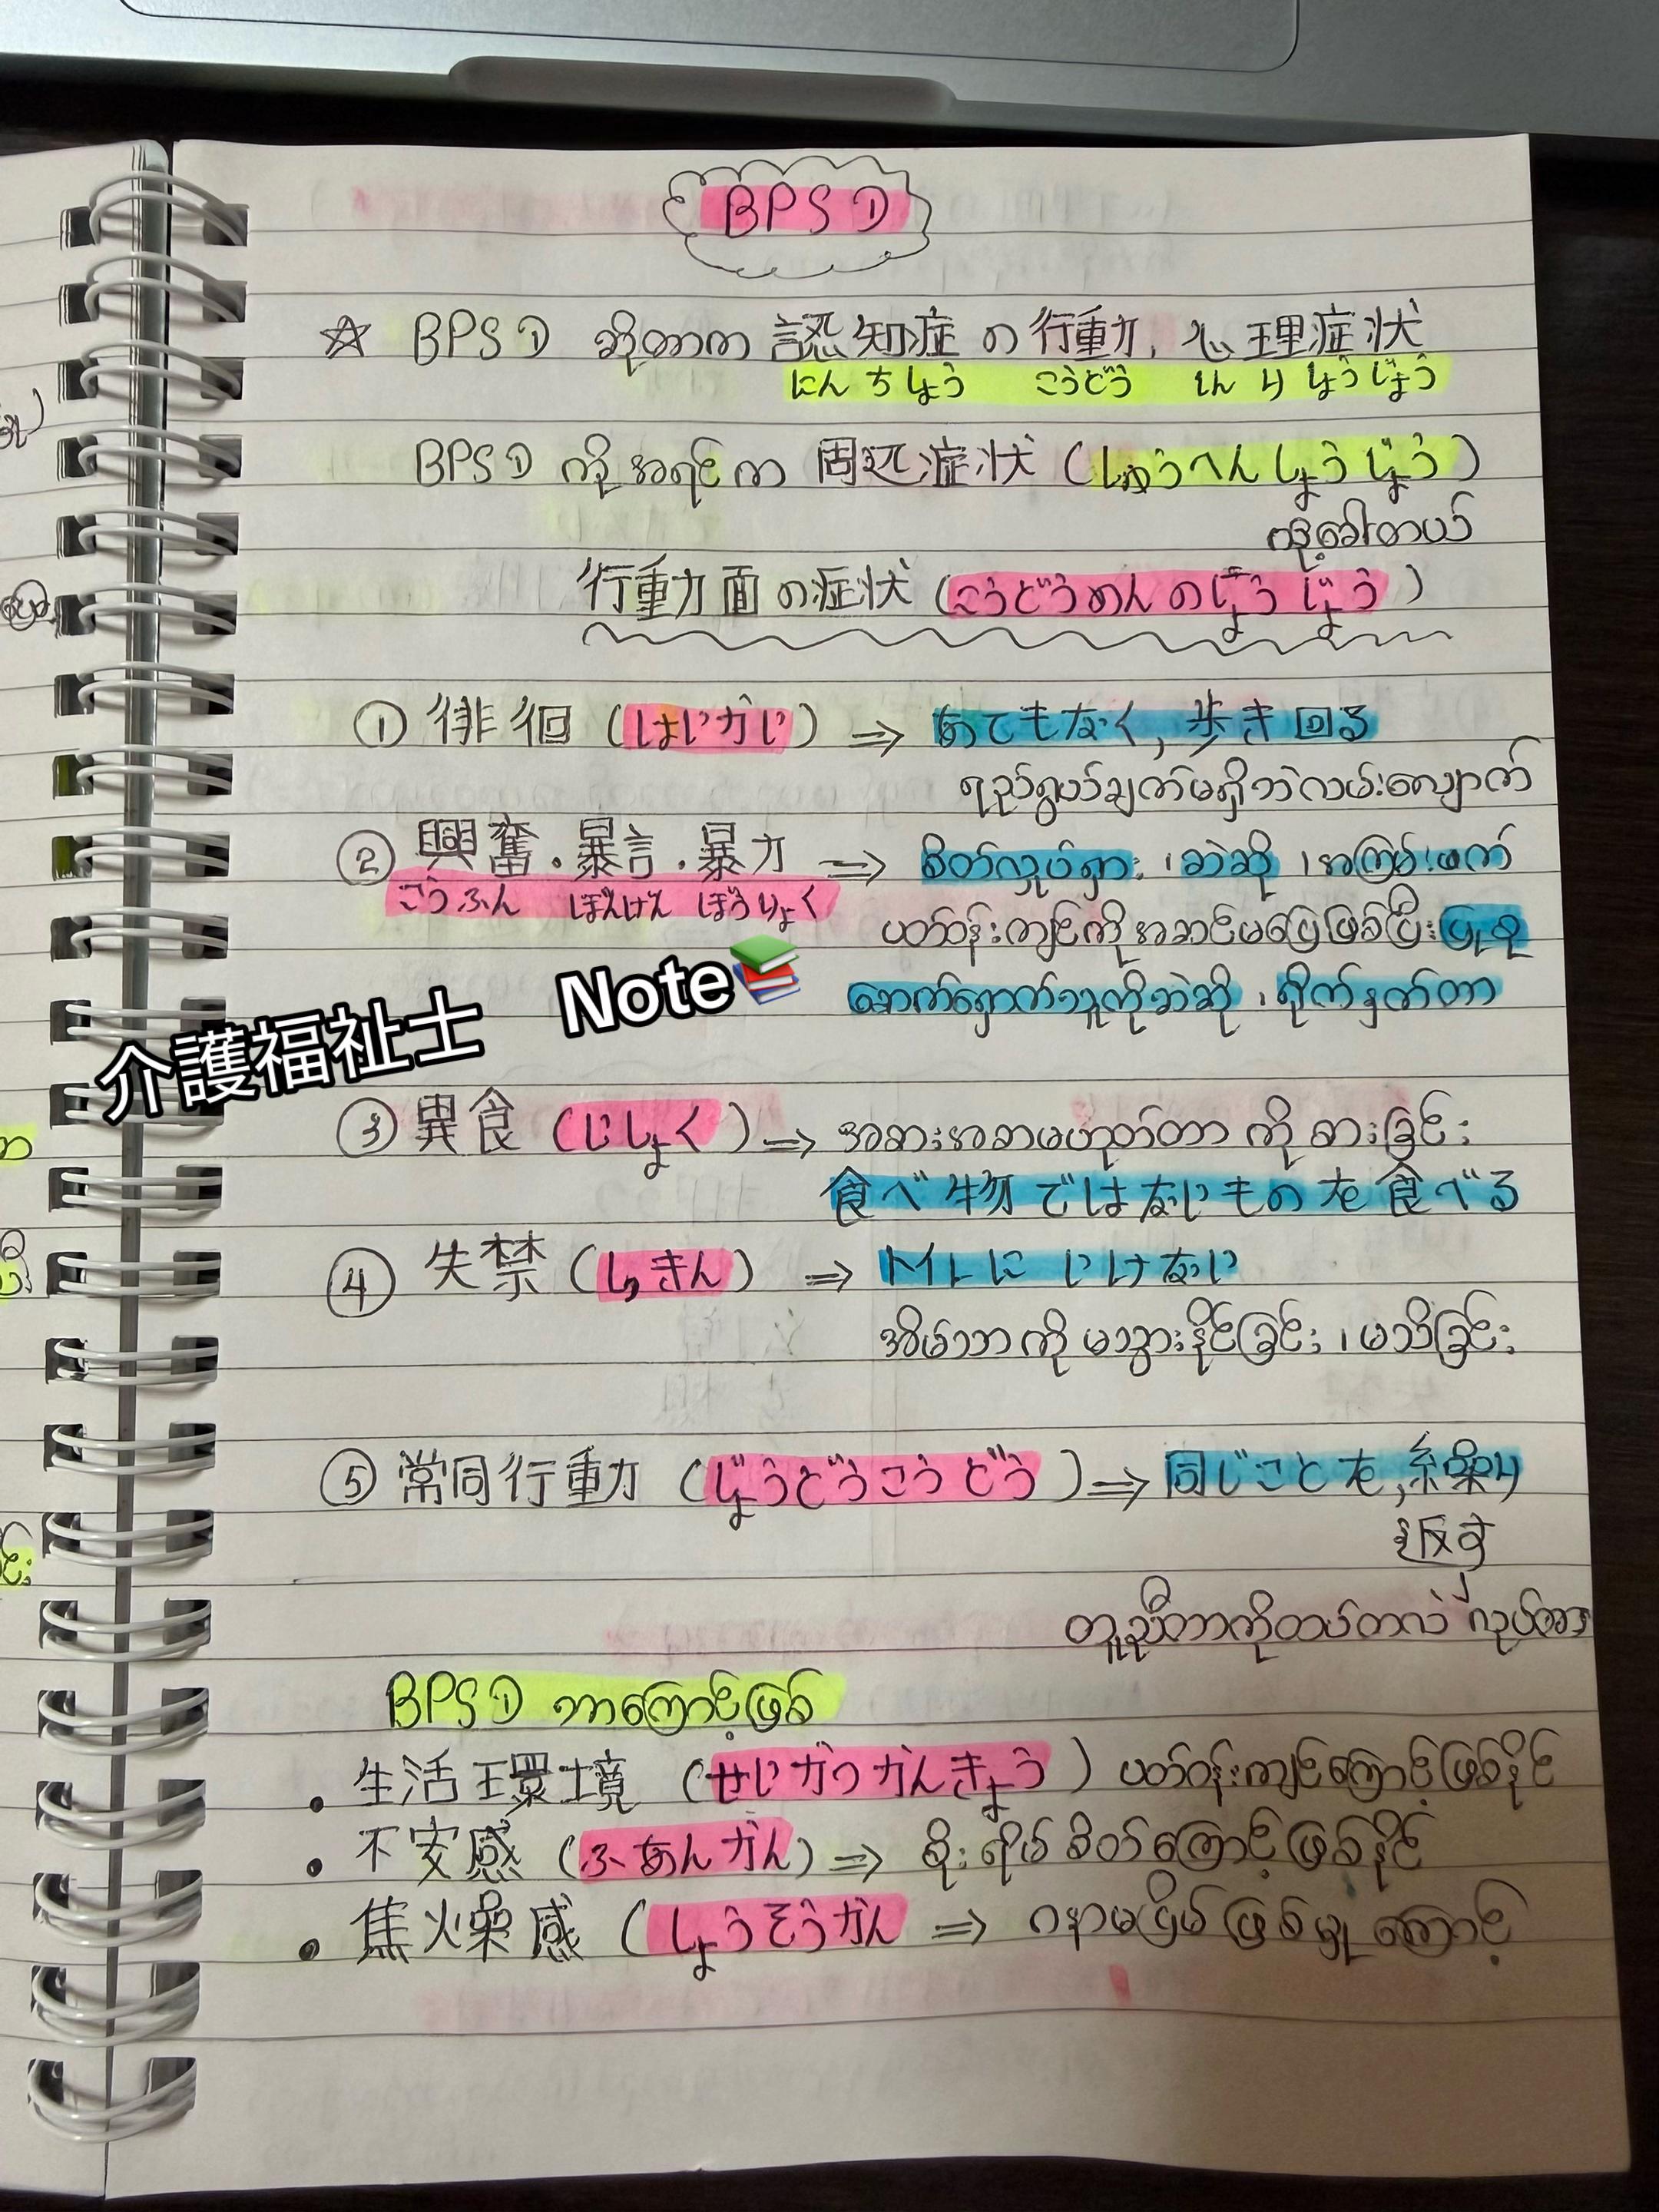 BPSD
☆ BPSD ဆိုတာက 認知症の行動, 心理症状
にんちしょう こうどう しんりしょうじょう
BPSD ကို အရင်က 周辺症状 (しゅうへんしょうじょう)
လို့ခေါ်တယ်
行動面の症状 (こうどうめんのしょうじょう)
① 徘徊 (はいかい) ⇒ あてもなく, 歩き回る
ရည်ရွယ်ချက်မရှိဘဲလမ်းလျှောက်
② 興奮.暴言.暴力 ⇒ စိတ်လှုပ်ရှား ၊ ဆဲဆို ၊ အကြမ်းဖက်
こうふん ぼんげん ぼうりょく
ပတ်ဝန်းကျင်ကို အဆင်မပြေဖြစ်ပြီး ပြုစု
စောက်ရှောက်သူကိုဆဲဆို ၊ ရိုက်နှက်တာ
Note📚
介護福祉士
③ 異食 (いしょく) ⇒ အစားအစာမဟုတ်တာ ကို စားခြင်း
食べ物ではないものを食べる
④ 失禁 (しっきん) ⇒ トイレに いけない
အိမ်သာ ကို မသွားနိုင်ခြင်း ၊ မသိခြင်း
⑤ 常同行動 (じょうどうこうどう) ⇒ 同じことを, 繰り
返す
တူညီတာကိုထပ်တလဲလဲ လုပ်တာ
BPSD ဘာကြောင့်ဖြစ်
• 生活環境 (せいかつかんきょう) ပတ်ဝန်းကျင်ကြောင့်ဖြစ်နိုင်
• 不安感 (ふあんかん) ⇒ စိုးရိမ်စိတ်ကြောင့်ဖြစ်နိုင်
• 焦燥感 (しょうそうかん ⇒ ဂနာမငြိမ် ဖြစ်မှု ကြောင့်